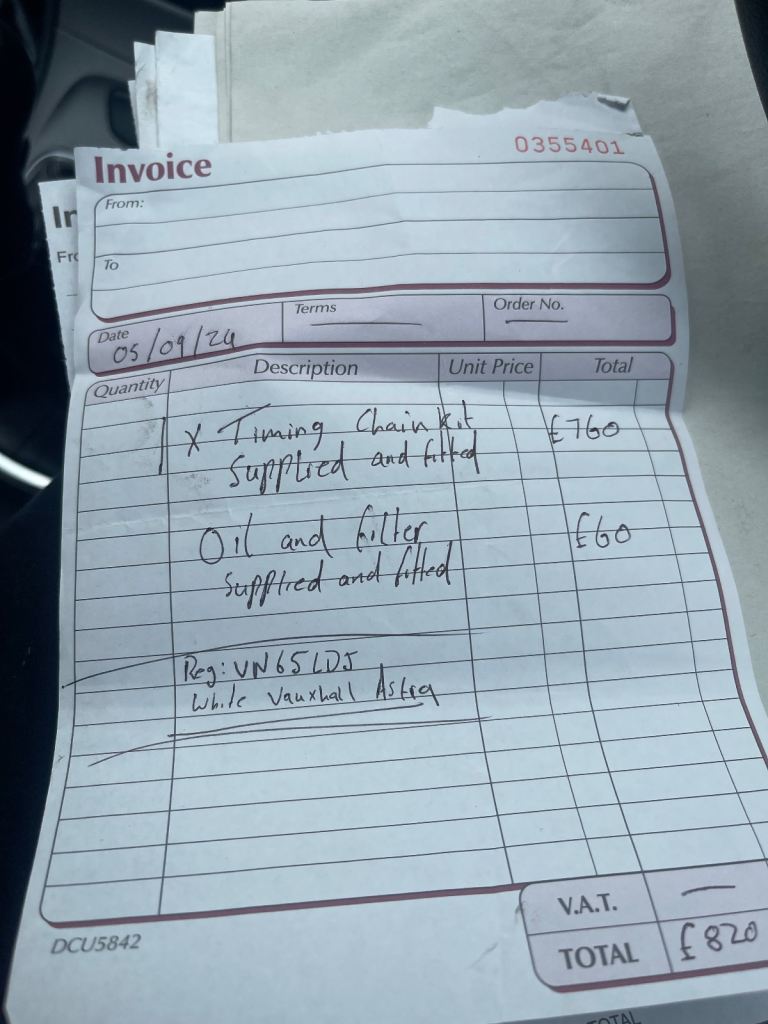 Invoice
0355401
From:
To
Date
05/09/24
Terms
Order No.
Quantity
Description
Unit Price
Total
1 X Timing Chain kit
£760
Supplied and fitted
Oil and filter
£60
Supplied and fitted
Reg: VN65LDJ
White Vauxhall Astra
V.A.T.
TOTAL
£820
DCU5842
TOTAL